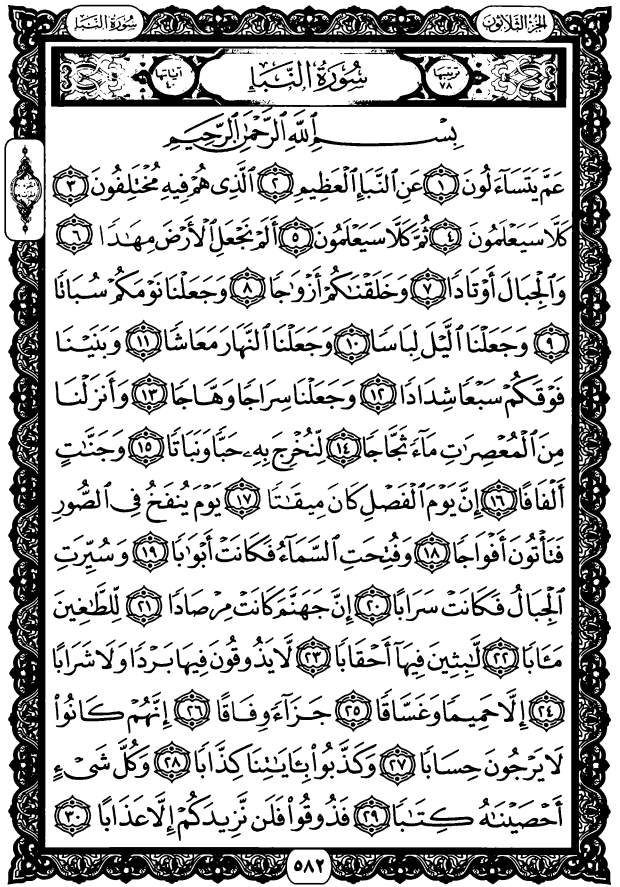 سُورَةُ النَّبَإِ
الجُزءُ الثَّلَاثُونَ
آيَاتُهَا ٤٠
سُورَةُ النَّبَإِ
تَرْتِيبُهَا ٧٨
بِسْمِ ٱللَّهِ ٱلرَّحْمَٰنِ ٱلرَّحِيمِ
عَمَّ يَتَسَآءَلُونَ ١ عَنِ ٱلنَّبَإِ ٱلْعَظِيمِ ٢ ٱلَّذِى هُمْ فِيهِ مُخْتَلِفُونَ ٣
كَلَّا سَيَعْلَمُونَ ٤ ثُمَّ كَلَّا سَيَعْلَمُونَ ٥ أَلَمْ نَجْعَلِ ٱلْأَرْضَ مِهَٰدًا ٦
وَٱلْجِبَالَ أَوْتَادًا ٧ وَخَلَقْنَٰكُمْ أَزْوَٰجًا ٨ وَجَعَلْنَا نَوْمَكُمْ سُبَاتًا
٩ وَجَعَلْنَا ٱلَّيْلَ لِبَاسًا ١٠ وَجَعَلْنَا ٱلنَّهَارَ مَعَاشًا ١١ وَبَنَيْنَا
فَوْقَكُمْ سَبْعًا شِدَادًا ١٢ وَجَعَلْنَا سِرَاجًا وَهَّاجًا ١٣ وَأَنزَلْنَا
مِنَ ٱلْمُعْصِرَٰتِ مَآءً ثَجَّاجًا ١٤ لِّنُخْرِجَ بِهِۦ حَبًّا وَنَبَاتًا ١٥ وَجَنَّٰتٍ
أَلْفَافًا ١٦ إِنَّ يَوْمَ ٱلْفَصْلِ كَانَ مِيقَٰتًا ١٧ يَوْمَ يُنفَخُ فِى ٱلصُّورِ
فَتَأْتُونَ أَفْوَاجًا ١٨ وَفُتِحَتِ ٱلسَّمَآءُ فَكَانَتْ أَبْوَٰبًا ١٩ وَسُيِّرَتِ
ٱلْجِبَالُ فَكَانَتْ سَرَابًا ٢٠ إِنَّ جَهَنَّمَ كَانَتْ مِرْصَادًا ٢١ لِّلطَّٰغِينَ
مَـَٔابًا ٢٢ لَّٰبِثِينَ فِيهَآ أَحْقَابًا ٢٣ لَّا يَذُوقُونَ فِيهَا بَرْدًا وَلَا شَرَابًا
٢٤ إِلَّا حَمِيمًا وَغَسَّاقًا ٢٥ جَزَآءً وِفَاقًا ٢٦ إِنَّهُمْ كَانُوا۟
لَا يَرْجُونَ حِسَابًا ٢٧ وَكَذَّبُوا۟ بِـَٔايَٰتِنَا كِذَّابًا ٢٨ وَكُلَّ شَىْءٍ
أَحْصَيْنَٰهُ كِتَٰبًا ٢٩ فَذُوقُوا۟ فَلَن نَّزِيدَكُمْ إِلَّا عَذَابًا ٣٠
٥٨٢